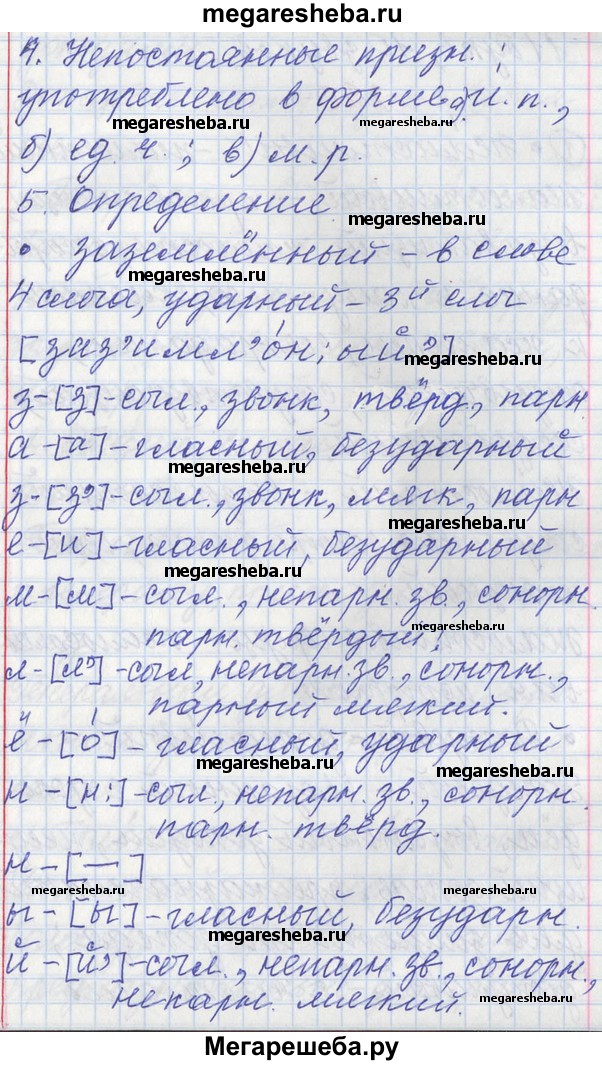 megaresheba.ru
4. Непостоянные призн.:
употреблено в форме а) И. п.,
megaresheba.ru
б) ед. ч.; в) м. р.
5. Определение
megaresheba.ru
• заземлённый – в слове
megaresheba.ru
4 слога, ударный – 3й слог
[заз'имл'о́н:ый']
megaresheba.ru
з-[з]-согл., звонк, твёрд., парн
а-[а]-гласный, безударный
megaresheba.ru
з-[з']-согл., звонк, мягк, парн
megaresheba.ru
е-[и]-гласный, безударный
megaresheba.ru
м-[м]-согл., непарн. зв., сонорн.
парн. твёрдый;
megaresheba.ru
л-[л']-согл, непарн. зв., сонорн.,
парный мягкий.
ё-[о́]-гласный, ударный
megaresheba.ru
н-[н:]-согл., непарн. зв., сонорн.
парн. твёрд.
н-[—]
megaresheba.ru
megaresheba.ru
ы-[ы]-гласный, безударн.
megaresheba.ru
й-[й']-согл., непарн. зв., сонорн.,
непарн. мягкий.
megaresheba.ru
Мегарешеба.ру